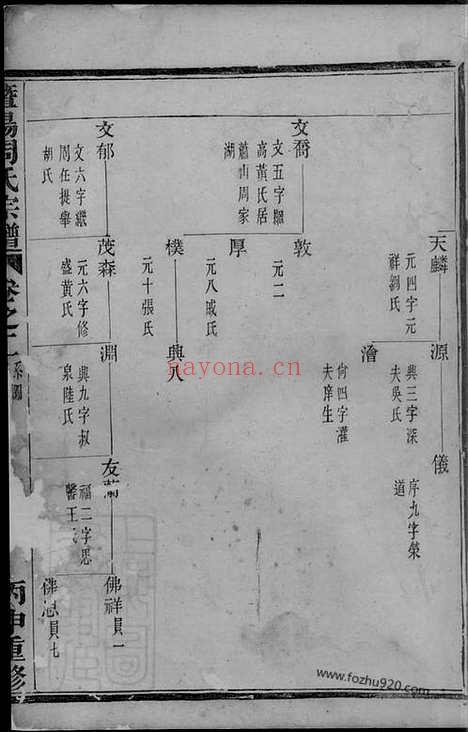 天麟
元四字元
祥劉氏
源
興三字深
夫吳氏
儀
序九字榮
道
澮
尙四字灌
夫庠生
文喬
文五字隰
高黃氏居
蕭山周家
湖
敦
元二
厚
元八戚氏
樸
元十張氏
興八
文郁
文六字繼
周在提舉
胡氏
茂森
元六字修
盛黃氏
淵
興九字叔
泉陸氏
友蘭
福二字思
馨王氏
佛祥員一
佛 員七
暨陽周氏宗譜
卷之二
系圖
丙申重修
nayona.cn
www.fozhu920.com